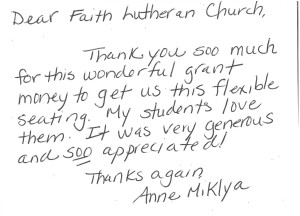 Dear Faith Lutheran Church,
Thank you soo much
for this wonderful grant
money to get us this flexible
seating. My students love
them. It was very generous
and soo appreciated!
Thanks again,
Anne Miklya